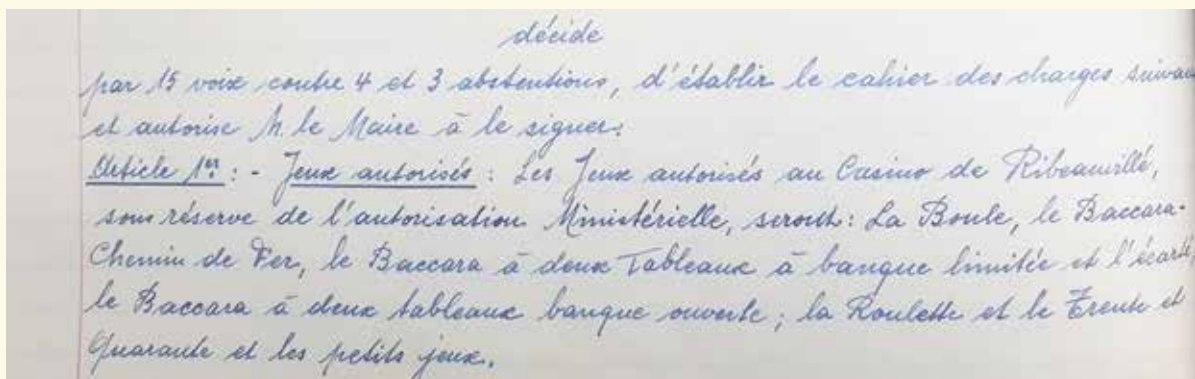 décide
par 15 voix contre 4 et 3 abstentions, d'établir le cahier des charges suivan
et autorise M. le Maire à le signer:
Article 1er: - Jeux autorisés : Les Jeux autorisés au Casino de Ribeauvillé,
sous réserve de l'autorisation Ministérielle, seront: La Boule, le Baccara-
Chemin de Fer, le Baccara à deux Tableaux à banque limitée et l'écarté,
le Baccara à deux tableaux banque ouverte ; la Roulette et le Trente et
Quarante et les petits jeux.